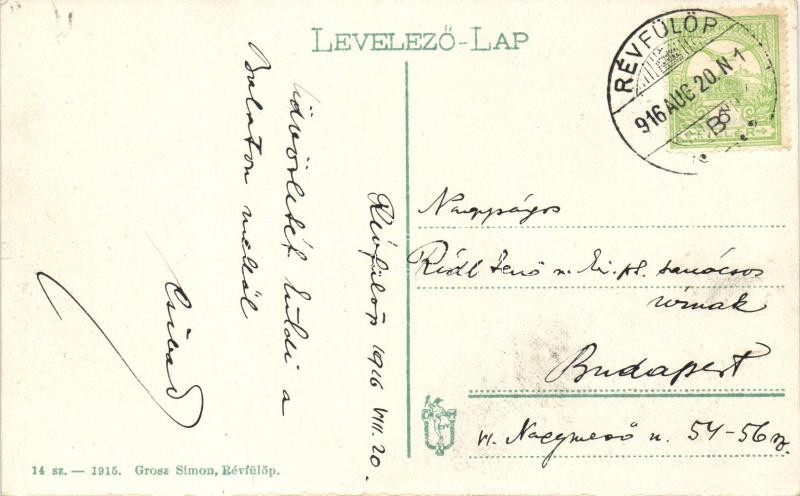 LEVELEZŐ-LAP
RÉVFÜLÖP
916 AUG 20. N 1
Révfülöp 1916 VIII. 20.
Üdvözletét küldi a
Balaton mellől
Nagyságos
Riedl Jenő m. kir. pü. tanácsos
úrnak
Budapest
VI. Nagymező u. 54-56 sz.
14 sz. — 1915. Grosz Simon, Révfülöp.